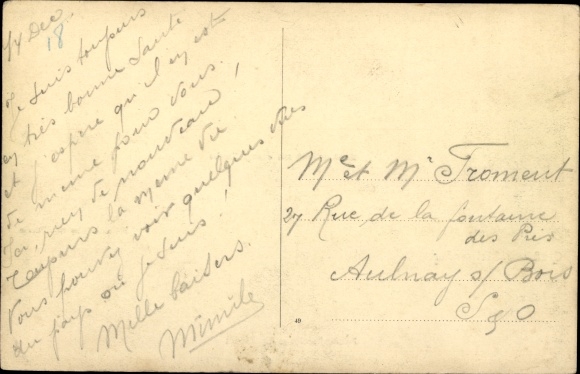 14 Dec
18
Je suis toujours
en très bonne santé
et j'espère qu'il en est
de même pour vous.
J'ai rien de nouveau !
Toujours la même vie
Vous pouvez voir quelques vues
du pays où je suis !
Mille baisers.
Mimile
Me et Mr Froment
27 Rue de la fontaine
des Prés
Aulnay s/ Bois
S & O
40